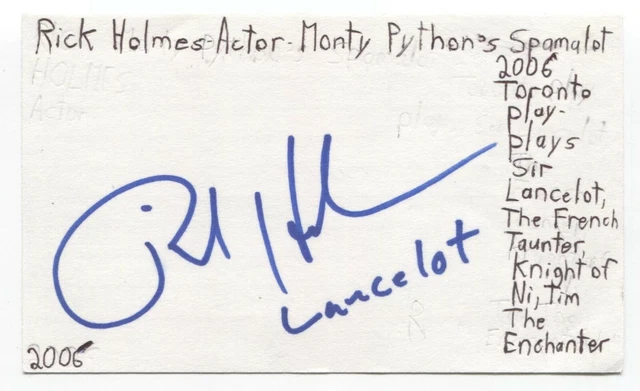 Rick Holmes Actor-Monty Python's Spamalot
2006
Toronto
play-
plays
Sir
Lancelot,
The French
Taunter,
Knight of
Ni, Tim
The
Enchanter
Lancelot
2006
HOLMES
Actor